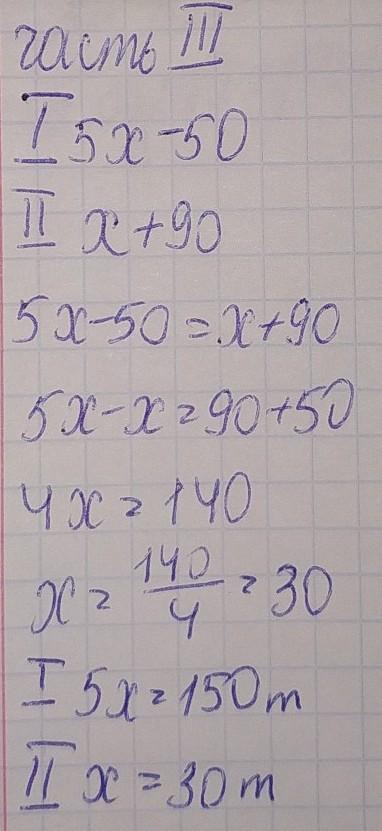 часть III
I 5x-50
II x+90
5x-50=x+90
5x-x=90+50
4x=140
x=140/4=30
I 5x=150т
II x=30т